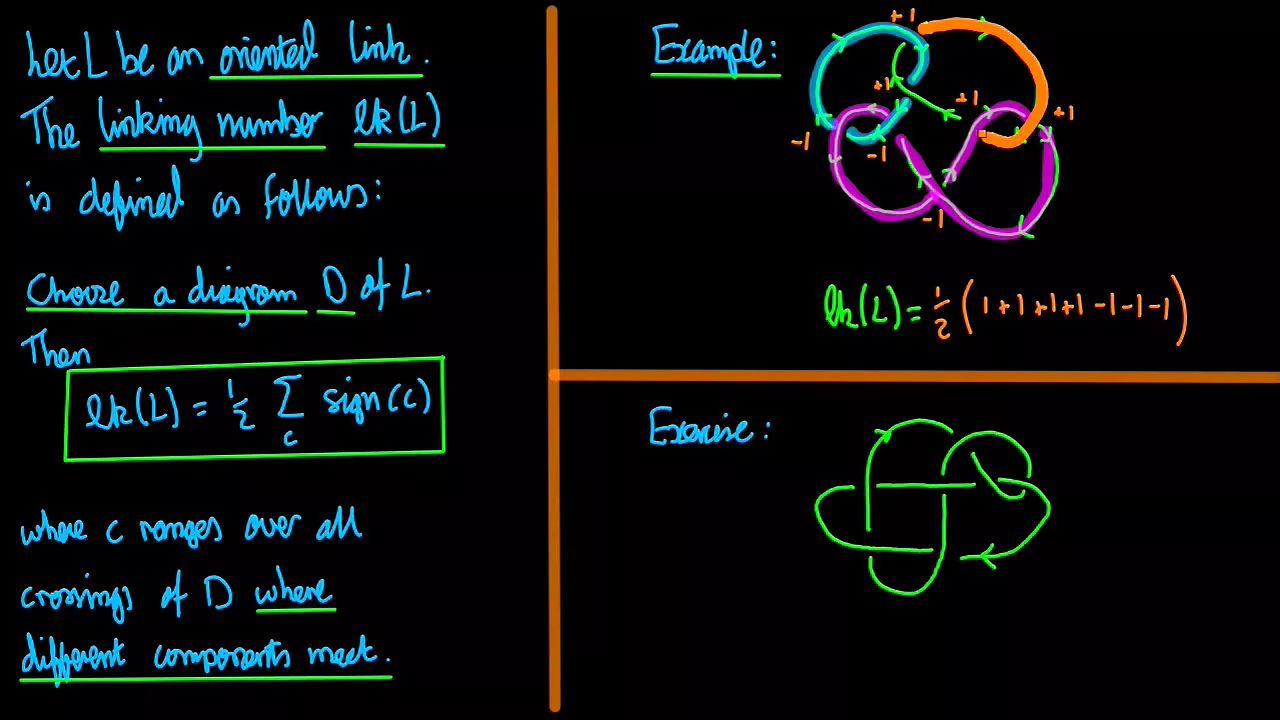 Let L be an oriented link.
The linking number lk(L)
is defined as follows:
Choose a diagram D of L.
Then
lk(L) = 1/2 Σ_c sign(c)
where c ranges over all
crossings of D where
different components meet.
Example:
+1
+1
+1
+1
-1
-1
-1
lk(L) = 1/2 (1+1+1+1-1-1-1)
Exercise: